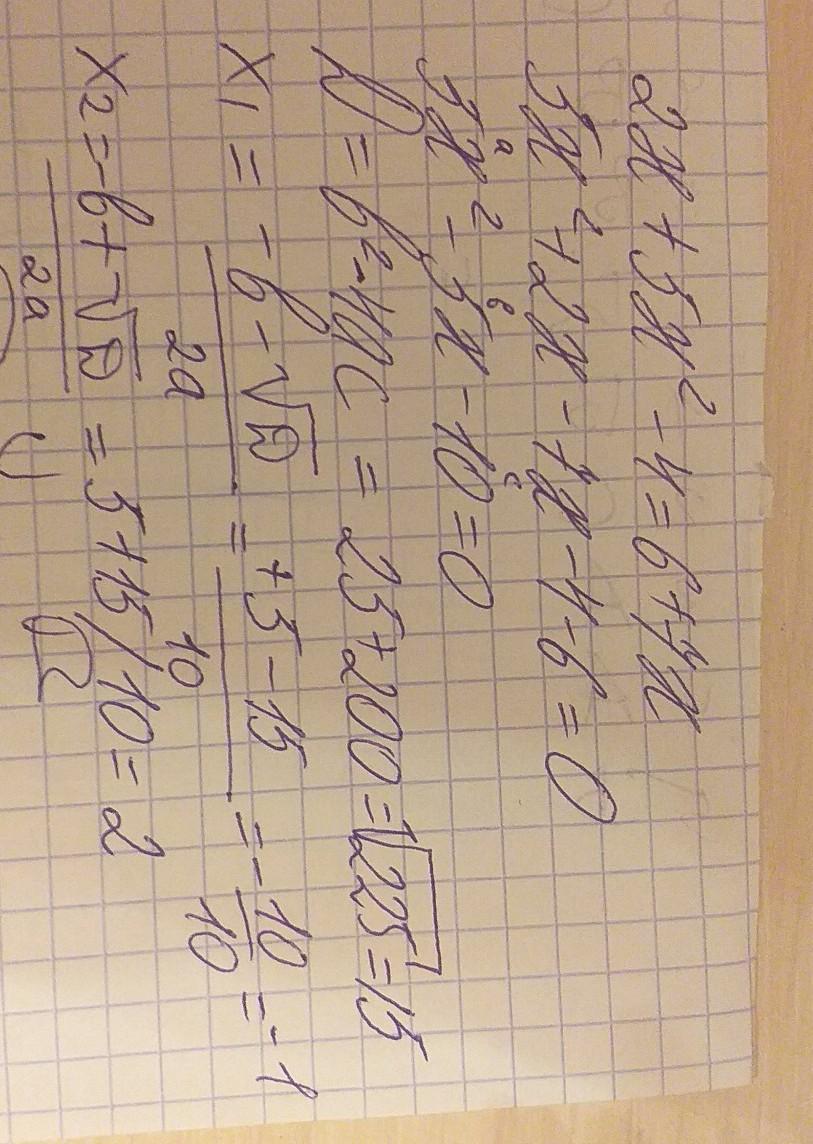 2x + 5x² - 4 = 6 + 7x
5x² + 2x - 7x - 4 - 6 = 0
a в c
5x² - 5x - 10 = 0
D = b² - 4ac = 25 + 200 = √225 = 15
x1 = -b - √D / 2a = +5 - 15 / 10 = -10/10 = -1
x2 = -b + √D / 2a = 5 + 15/10 = 2